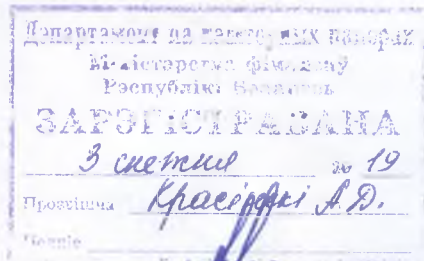 Дэпартамент па каштоўных паперах
Міністэрства фінансаў
Рэспублікі Беларусь
ЗАРЭГІСТРАВАНА
3 снежня 2019
Прозвішча А.Д.
Подпіс